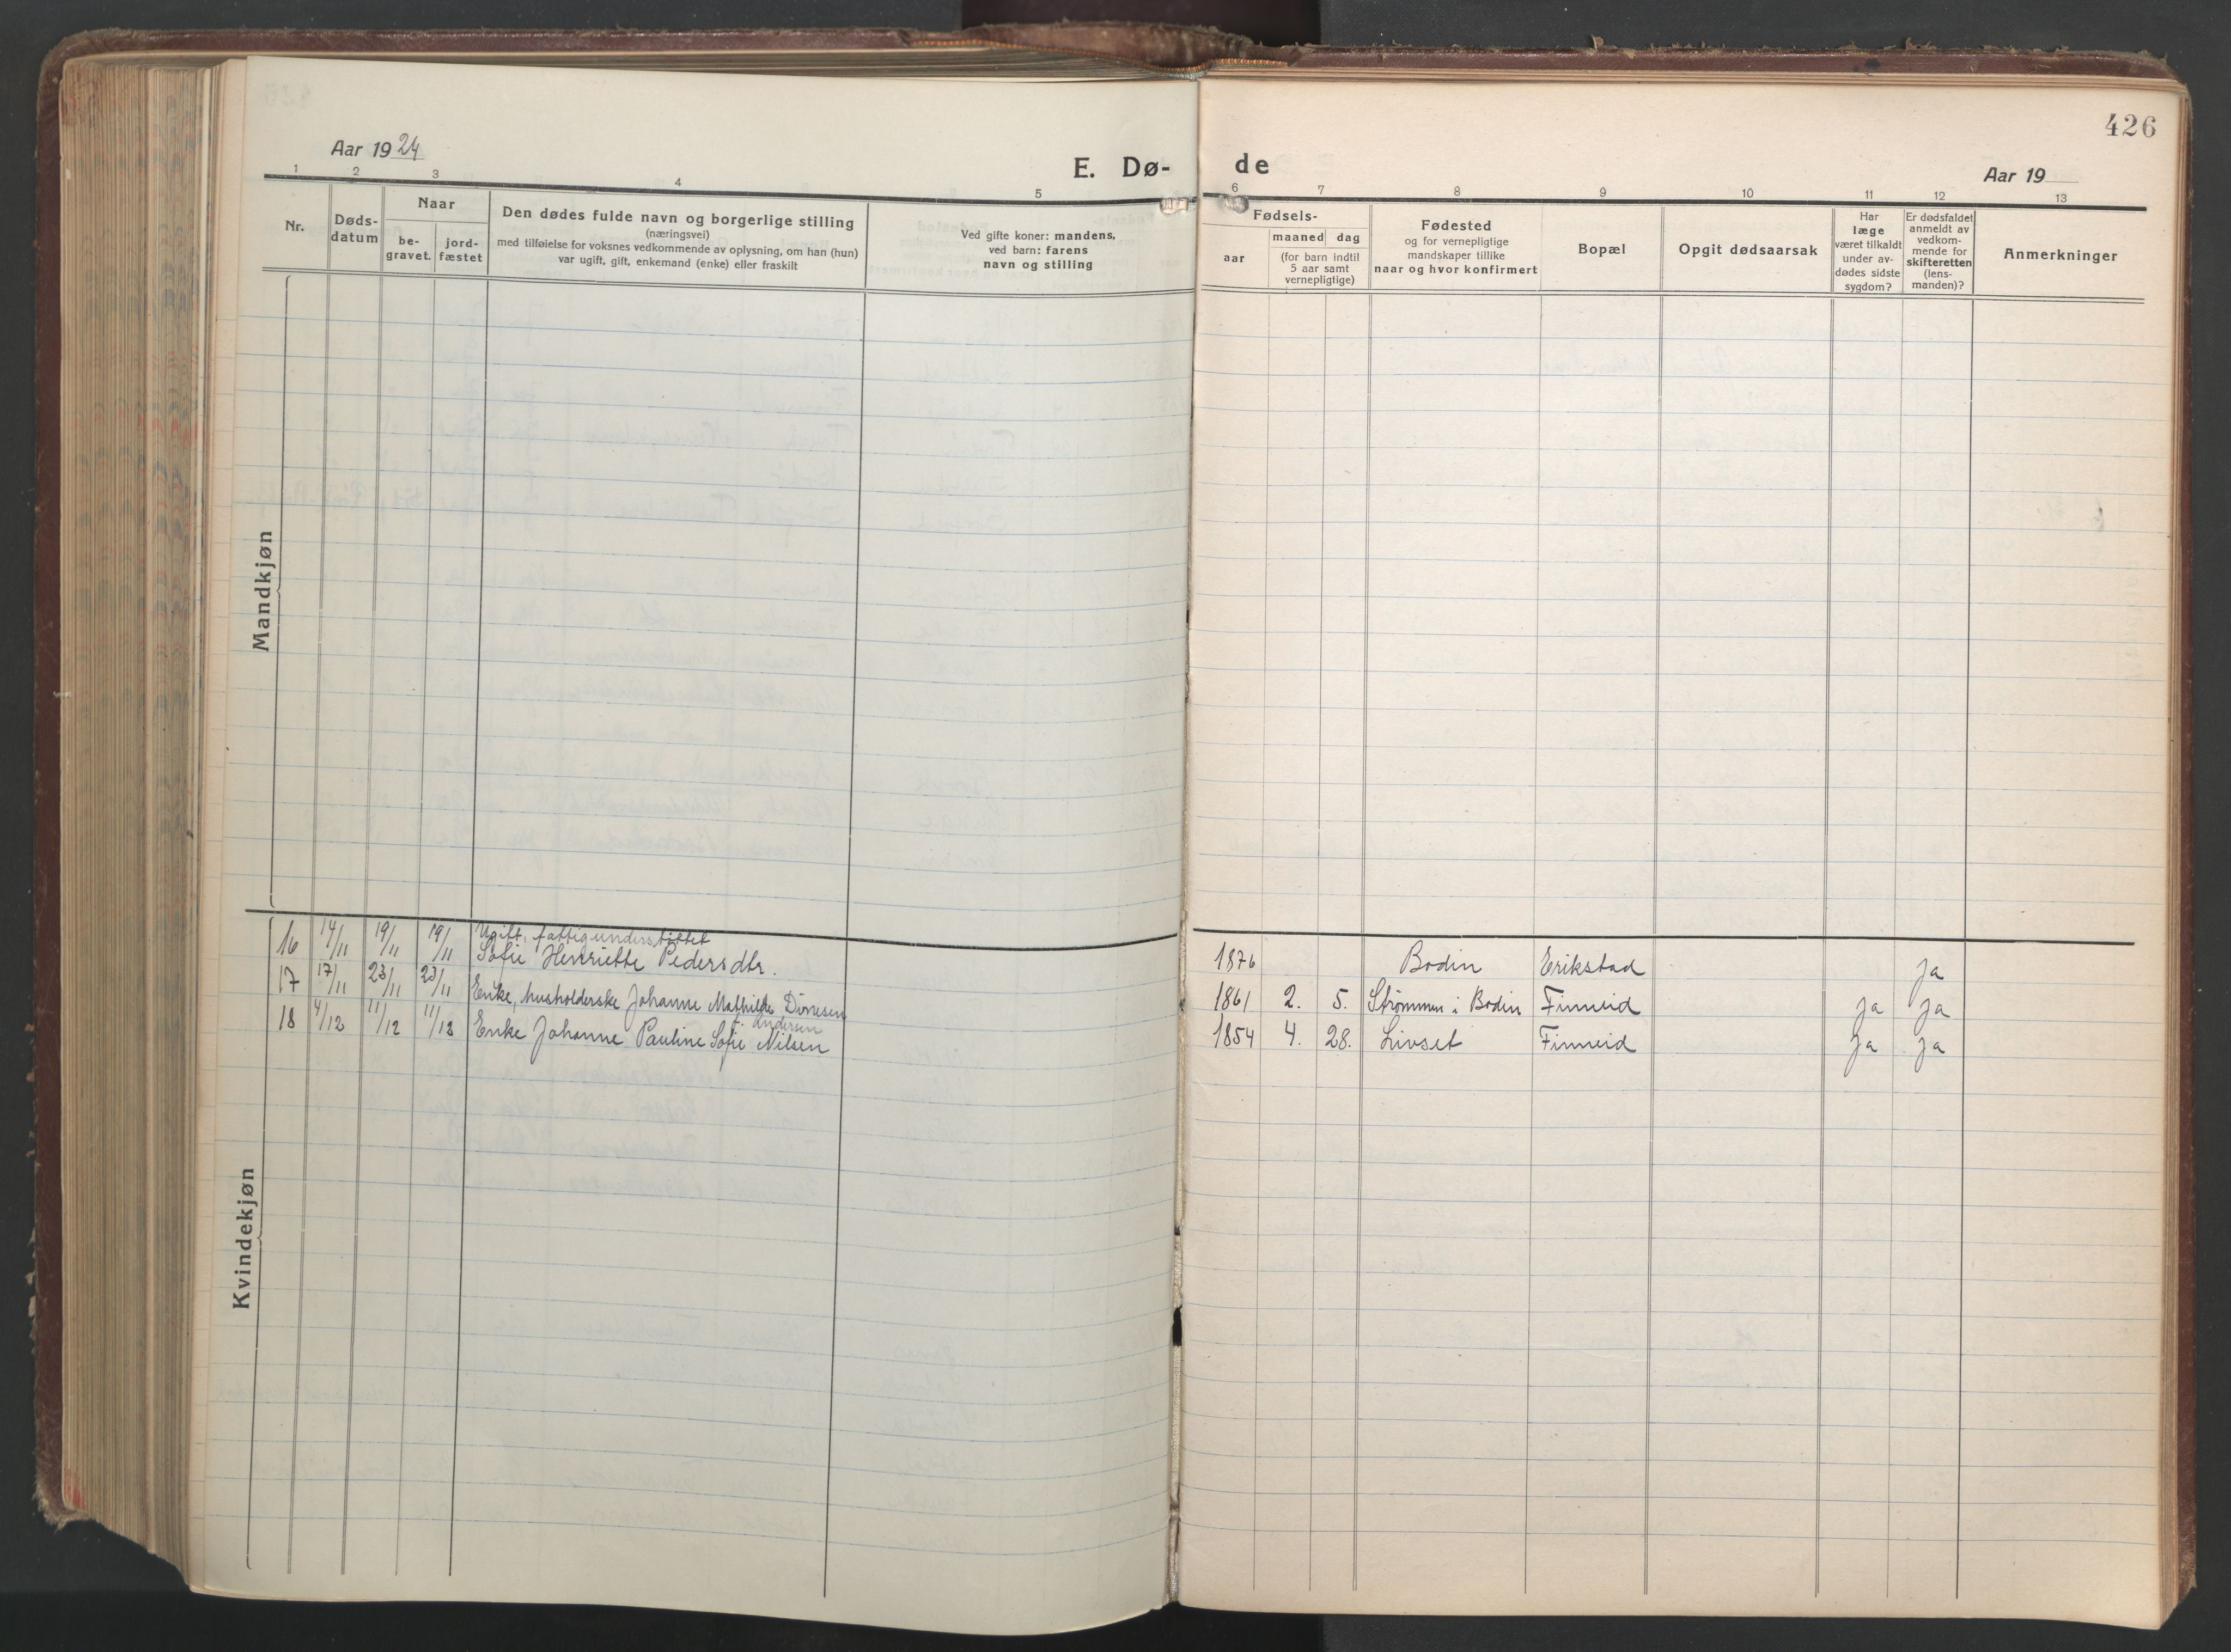 426
Aar 1924
E. Dø-
de
Aar 19
1 2 3 4 5 6 7 8 9 10 11 12 13
Nr.
Døds-
datum
Naar
be-
gravet.
jord-
fæstet
Den dødes fulde navn og borgerlige stilling
(næringsvei)
med tilføielse for voksnes vedkommende av oplysning, om han (hun)
var ugift, gift, enkemand (enke) eller fraskilt
Ved gifte koner: mandens,
ved barn: farens
navn og stilling
Fødsels-
aar
maaned dag
(for barn indtil
5 aar samt
vernepligtige)
Fødested
og for vernepligtige
mandskaper tillike
naar og hvor konfirmert
Bopæl
Opgit dødsaarsak
Har
læge
været tilkaldt
under av-
dødes sidste
sygdom?
Er dødsfaldet
anmeldt av
vedkom-
mende for
skifteretten
(lens-
manden)?
Anmerkninger
Mandkjøn
Kvindekjøn
Ugift, fattigunderstøttet
16 14/11 19/11 19/11 Sofie Henriette Pedersdtr. 1876 Bodin Erikstad ja
17 17/11 23/11 23/11 Enke, husholderske Johanne Mathilde 1861 2. 5. Strømmen i Bodin Finneid ja ja
f. Andersen
18 4/12 11/12 11/12 Enke Johanne Pauline Sofie Nilsen 1854 4. 28. Livset Finneid ja ja